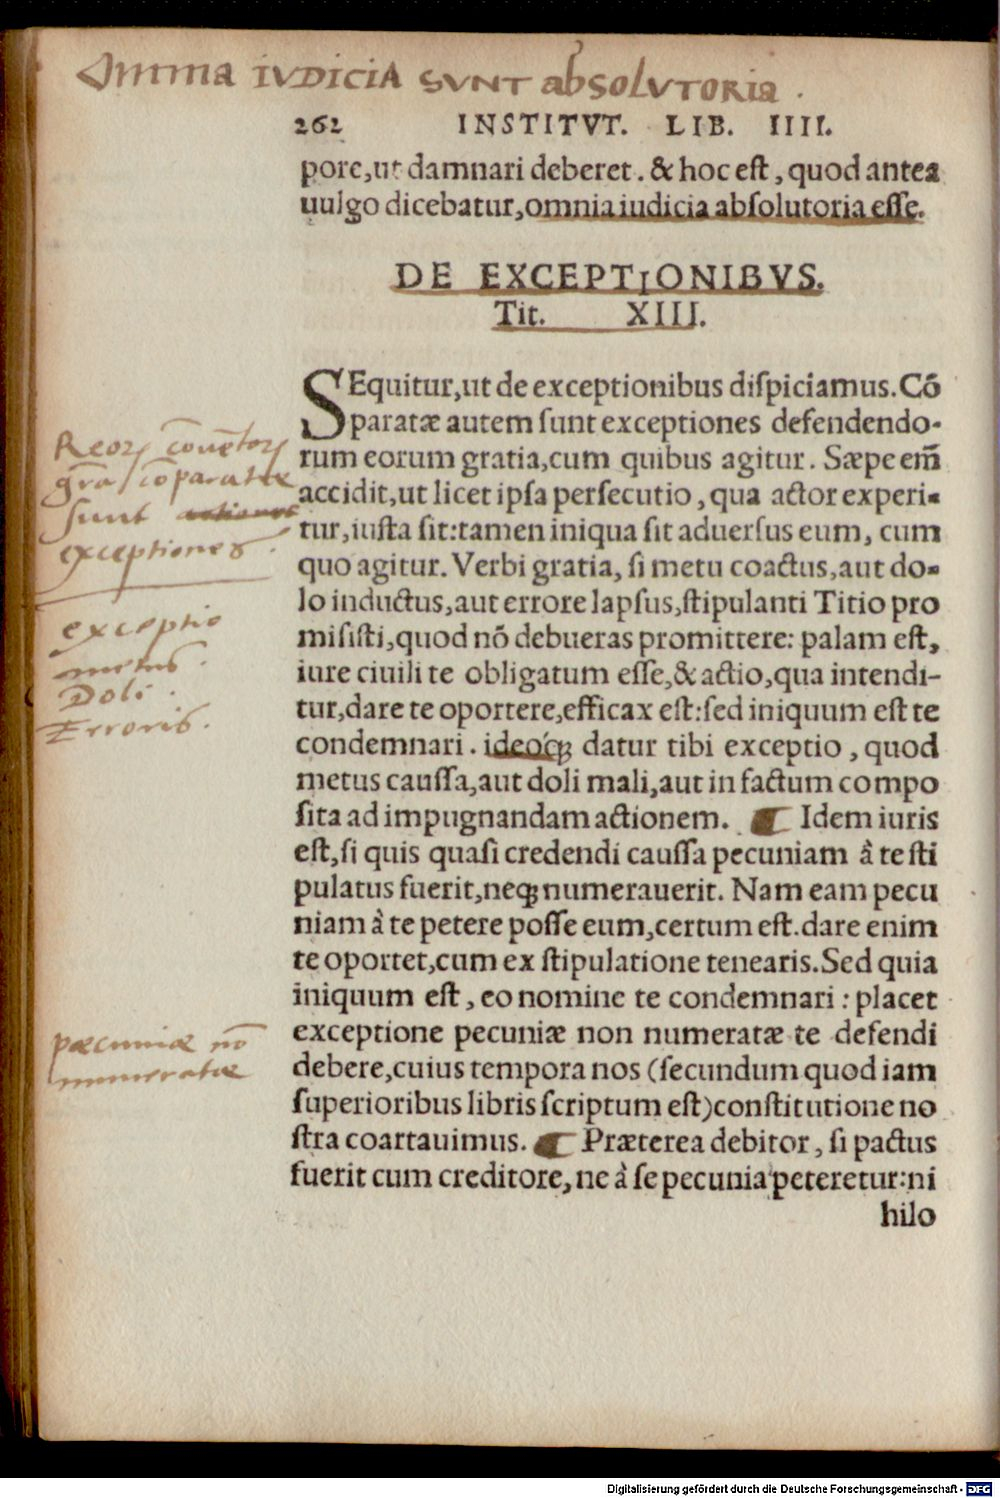 Omnia IVDICIA SVNT absolVTORIA .
262 INSTITVT. LIB. IIII.
pore,ut damnari deberet. & hoc est, quod antea
uulgo dicebatur,omnia iudicia absolutoria esse.
DE EXCEPTIONIBVS.
Tit. XIII.
SEquitur,ut de exceptionibus dispiciamus. Cō
paratæ autem sunt exceptiones defendendo-
rum eorum gratia,cum quibus agitur. Sæpe em̄
accidit,ut licet ipsa persecutio, qua actor experi-
tur,iusta sit:tamen iniqua sit aduersus eum, cum
quo agitur. Verbi gratia, si metu coactus,aut do-
lo inductus,aut errore lapsus,stipulanti Titio pro
misisti,quod nō debueras promittere: palam est,
iure ciuili te obligatum esse,& actio,qua intendi-
tur,dare te oportere,efficax est:sed iniquum est te
condemnari. ideoq́ꝫ datur tibi exceptio, quod
metus caussa,aut doli mali,aut in factum compo
sita ad impugnandam actionem. ☛ Idem iuris
est,si quis quasi credendi caussa pecuniam à te sti
pulatus fuerit,neqꝫ numerauerit. Nam eam pecu
niam à te petere posse eum,certum est.dare enim
te oportet,cum ex stipulatione tenearis.Sed quia
iniquum est, eo nomine te condemnari: placet
exceptione pecuniæ non numeratæ te defendi
debere,cuius tempora nos (secundum quod iam
superioribus libris scriptum est)constitutione no
stra coartauimus. ☛ Præterea debitor, si pactus
fuerit cum creditore, ne à se pecunia peteretur:ni
hilo
Reoꝝ cōuētoꝝ
grā cōparatæ
sunt actiones
exceptiones.
exceptio
metus.
Doli.
Erroris.
pæcuniæ nō
numeratæ
Digitalisierung gefördert durch die Deutsche Forschungsgemeinschaft - DFG